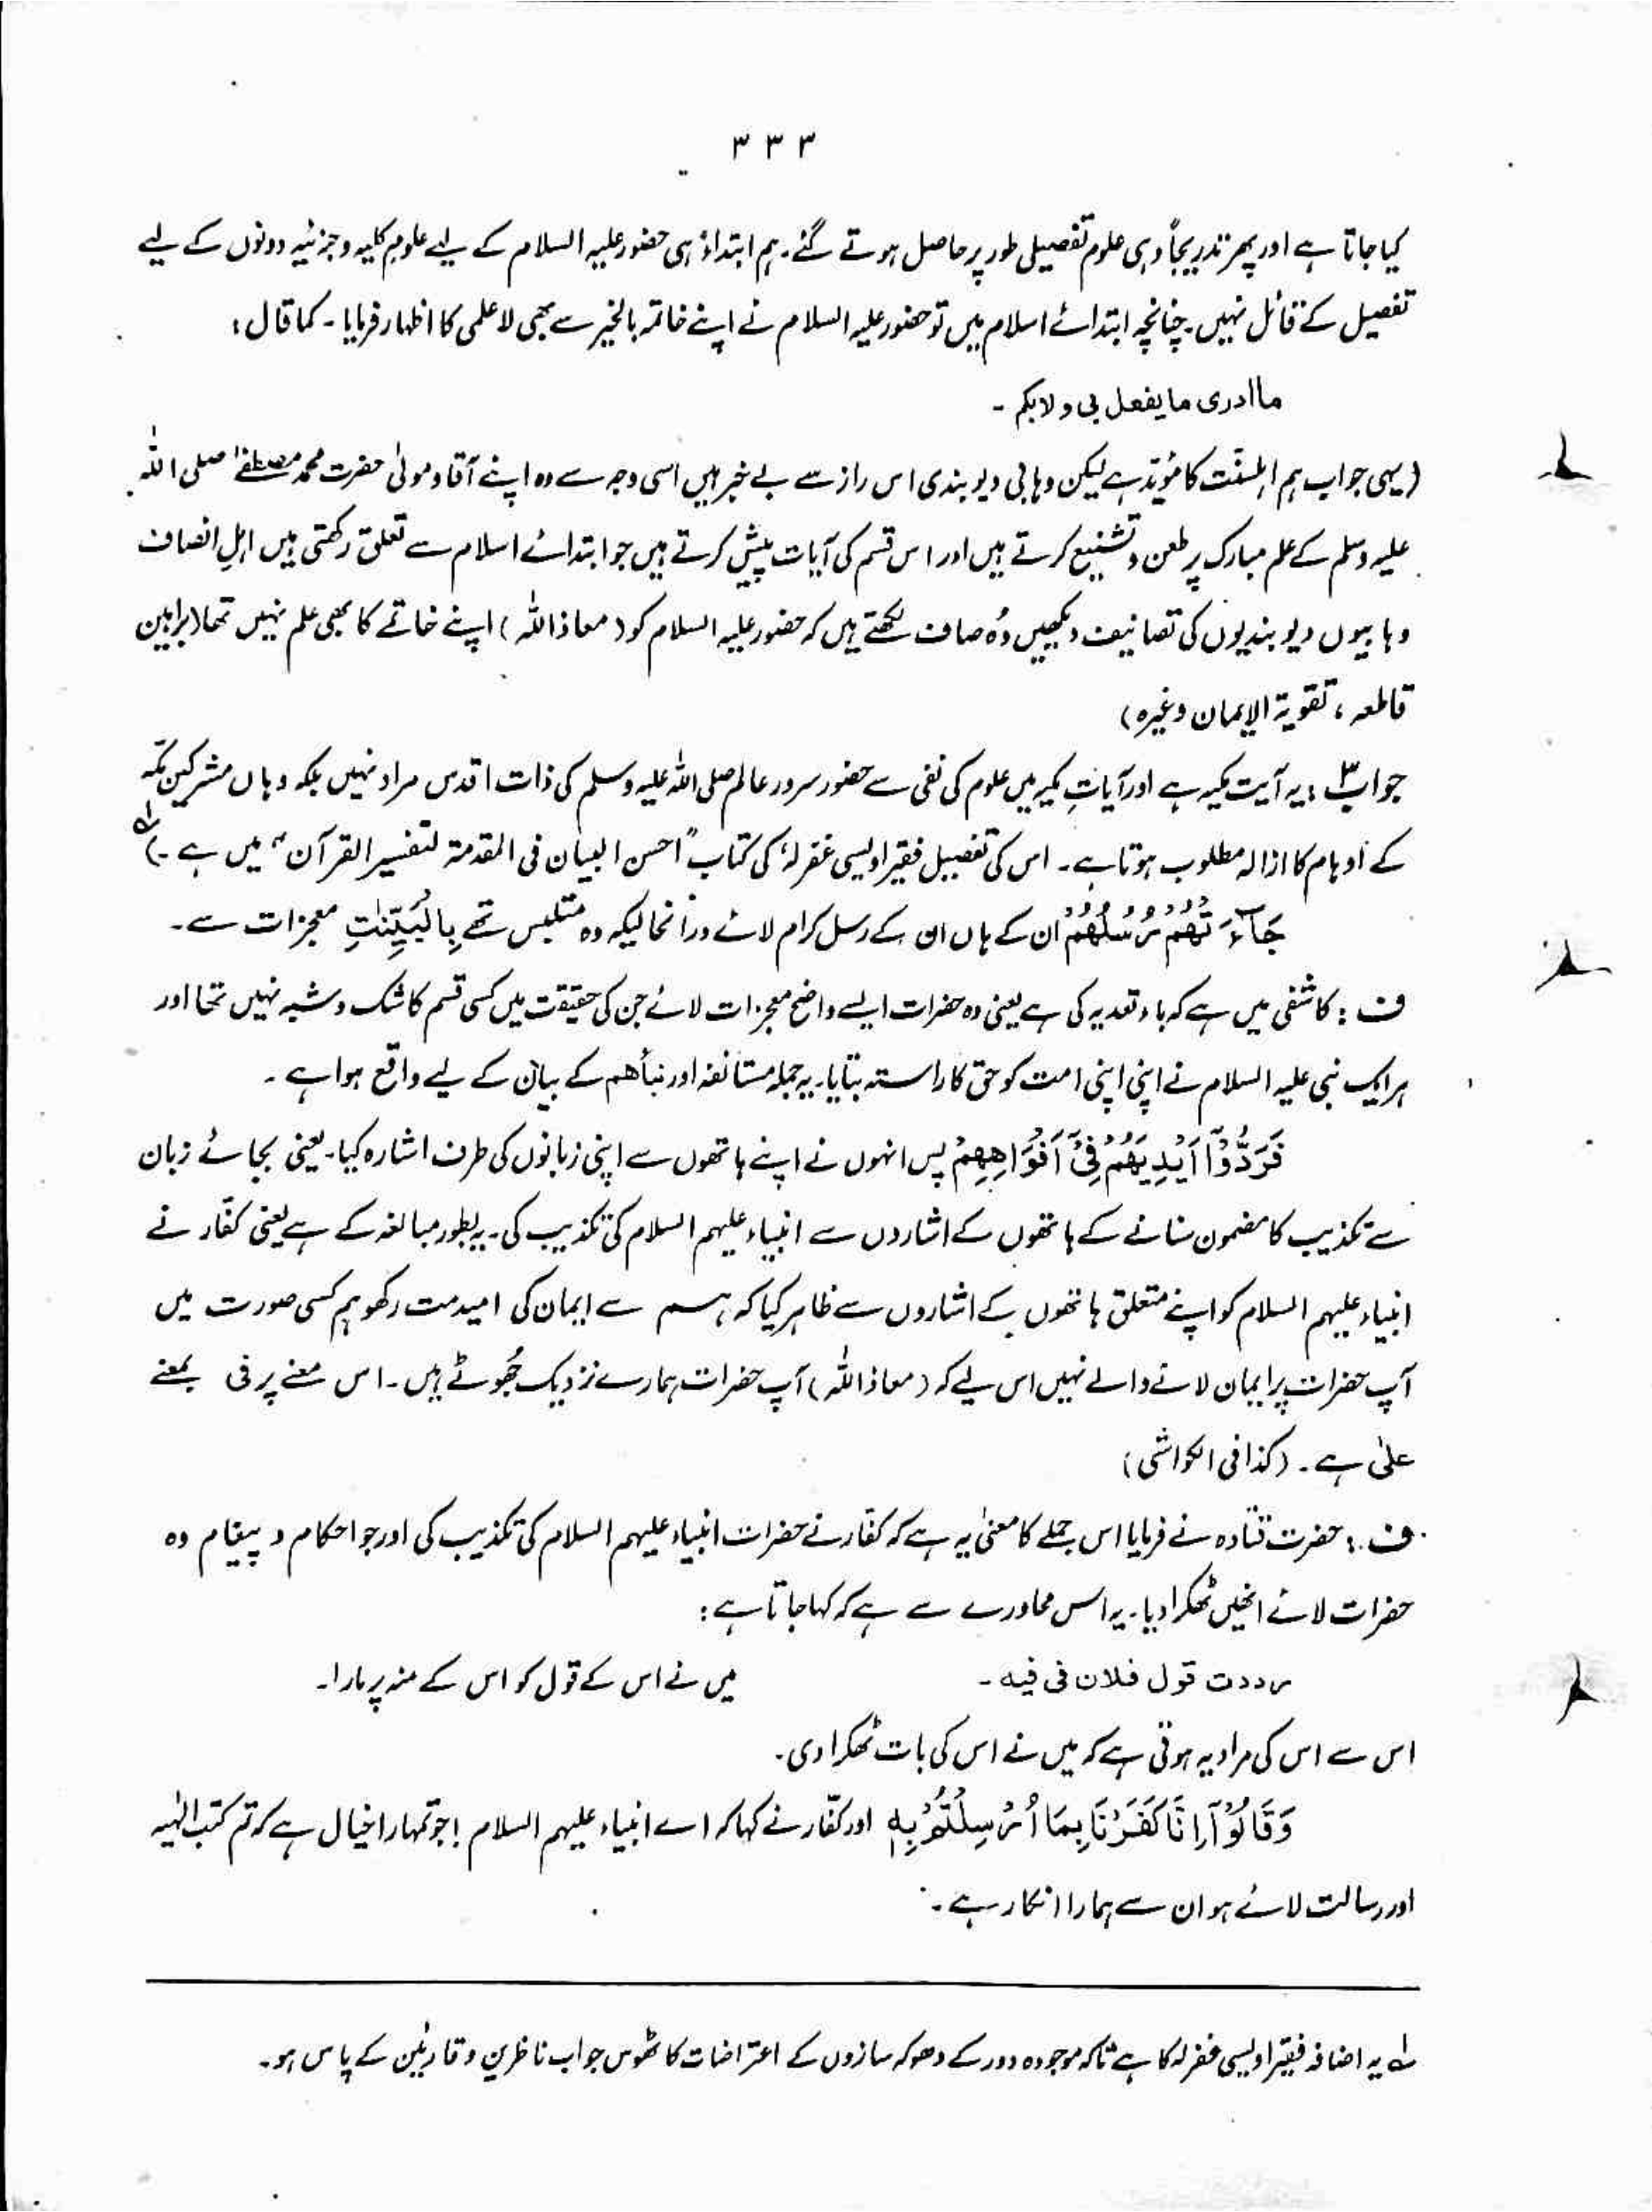 ۳۳۳
کیا جاتا ہے اور پھر تدریجاً وہی علوم تفصیلی طور پر حاصل ہوتے گئے۔ ہم ابتداءً ہی حضور علیہ السلام کے لیے علوم کلیہ و جزئیہ دونوں کے لیے
تفصیل کے قائل نہیں۔ چنانچہ ابتدائے اسلام میں تو حضور علیہ السلام نے اپنے خاتمہ بالخیر سے بھی لاعلمی کا اظہار فرمایا۔ کما قال :
ما ادری ما یفعل بی ولا بکم ۔
(یہی جواب ہم اہلسنّت کا مؤیّد ہے لیکن وہابی دیوبندی اس راز سے بے خبر ہیں اسی وجہ سے وہ اپنے آقا و مولیٰ حضرت محمد مصطفےٰ صلی اللہ
علیہ وسلم کے علم مبارک پر طعن و تشنیع کرتے ہیں اور اس قسم کی آیات پیش کرتے ہیں جو ابتدائے اسلام سے تعلق رکھتی ہیں اہلِ انصاف
وہابیوں دیوبندیوں کی تصانیف دیکھیں وُہ صاف لکھتے ہیں کہ حضور علیہ السلام کو (معاذ اللہ) اپنے خاتمے کا بھی علم نہیں تھا (براہین
قاطعہ ، تقویۃ الایمان وغیرہ)
جواب ۳ : یہ آیت مکیہ ہے اور آیاتِ مکیہ میں علوم کی نفی سے حضور سرور عالم صلی اللہ علیہ وسلم کی ذات اقدس مراد نہیں بلکہ وہاں مشرکین مکّہ
کے اوہام کا ازالہ مطلوب ہوتا ہے۔ اس کی تفصیل فقیر اویسی غفرلہٗ کی کتاب "احسن البیان فی المقدمۃ لتفسیر القرآن" میں ہے ۔) لہ
جَآءَتْهُمْ رُسُلُهُمْ ان کے ہاں ان کے رسل کرام لائے درآنحالیکہ وہ متلبس تھے بِالْبَیِّنٰتِ معجزات سے۔
ف : کاشفی میں ہے کہ باء تعدیہ کی ہے یعنی وہ حضرات ایسے واضح معجزات لائے جن کی حقیقت میں کسی قسم کا شک و شبہ نہیں تھا اور
ہر ایک نبی علیہ السلام نے اپنی اپنی امت کو حق کا راستہ بتایا۔ یہ جملہ مستانفہ اور نبأهم کے بیان کے لیے واقع ہوا ہے ۔
فَرَدُّوْٓا اَیْدِیَهُمْ فِیْٓ اَفْوَاهِهِمْ پس انہوں نے اپنے ہاتھوں سے اپنی زبانوں کی طرف اشارہ کیا۔ یعنی بجائے زبان
سے تکذیب کا مضمون سنانے کے ہاتھوں کے اشاروں سے انبیاء علیہم السلام کی تکذیب کی۔ یہ بطور مبالغہ کے ہے یعنی کفّار نے
انبیاء علیہم السلام کو اپنے متعلق ہاتھوں کے اشاروں سے ظاہر کیا کہ ہم سے ایمان کی امید مت رکھو ہم کسی صورت میں
آپ حضرات پر ایمان لانے والے نہیں اس لیے کہ (معاذ اللہ) آپ حضرات ہمارے نزدیک جُھوٹے ہیں ۔ اس معنے پر فی بمعنے
علیٰ ہے ۔ (کذا فی الکواشی)
ف : حضرت قتادہ نے فرمایا اس جملے کا معنیٰ یہ ہے کہ کفار نے حضرات انبیاء علیہم السلام کی تکذیب کی اور جو احکام و پیغام وہ
حضرات لائے انھیں ٹھکرا دیا۔ یہ اس محاورے سے ہے کہ کہا جاتا ہے :
رددت قول فلان فی فیہ ۔ میں نے اس کے قول کو اس کے منہ پر مارا۔
اس سے اس کی مراد یہ ہوتی ہے کہ میں نے اس کی بات ٹھکرا دی۔
وَقَالُوْٓا اِنَّا کَفَرْنَا بِمَآ اُرْسِلْتُمْ بِهٖ اور کفّار نے کہا کہ اے انبیاء علیہم السلام ! جو تمہارا خیال ہے کہ تم کتب الٰہیہ
اور رسالت لائے ہو ان سے ہمارا انکار ہے ۔
لہ یہ اضافہ فقیر اویسی غفرلہ کا ہے تاکہ موجودہ دور کے دھوکہ سازوں کے اعتراضات کا ٹھوس جواب ناظرین و قارئین کے پاس ہو۔